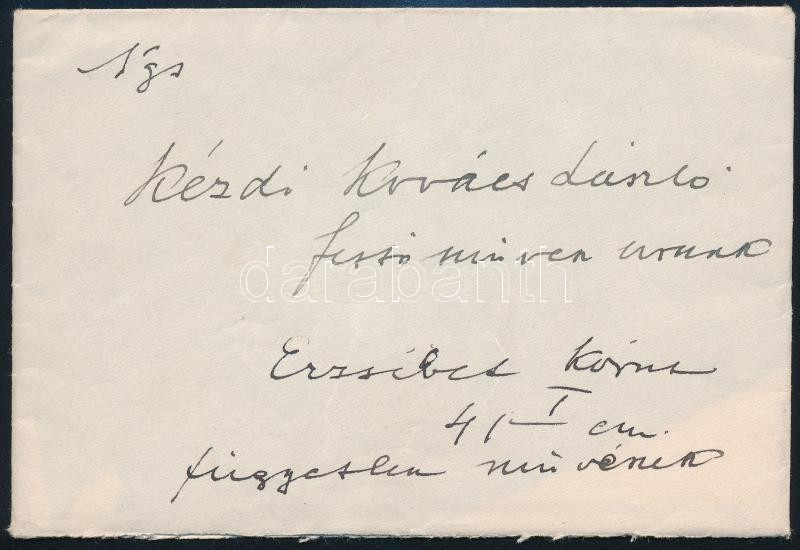 Ngs
Kézdi Kovács László
festőművész urnak
darabanth
Erzsébet Körut
41 I em.
független művészek